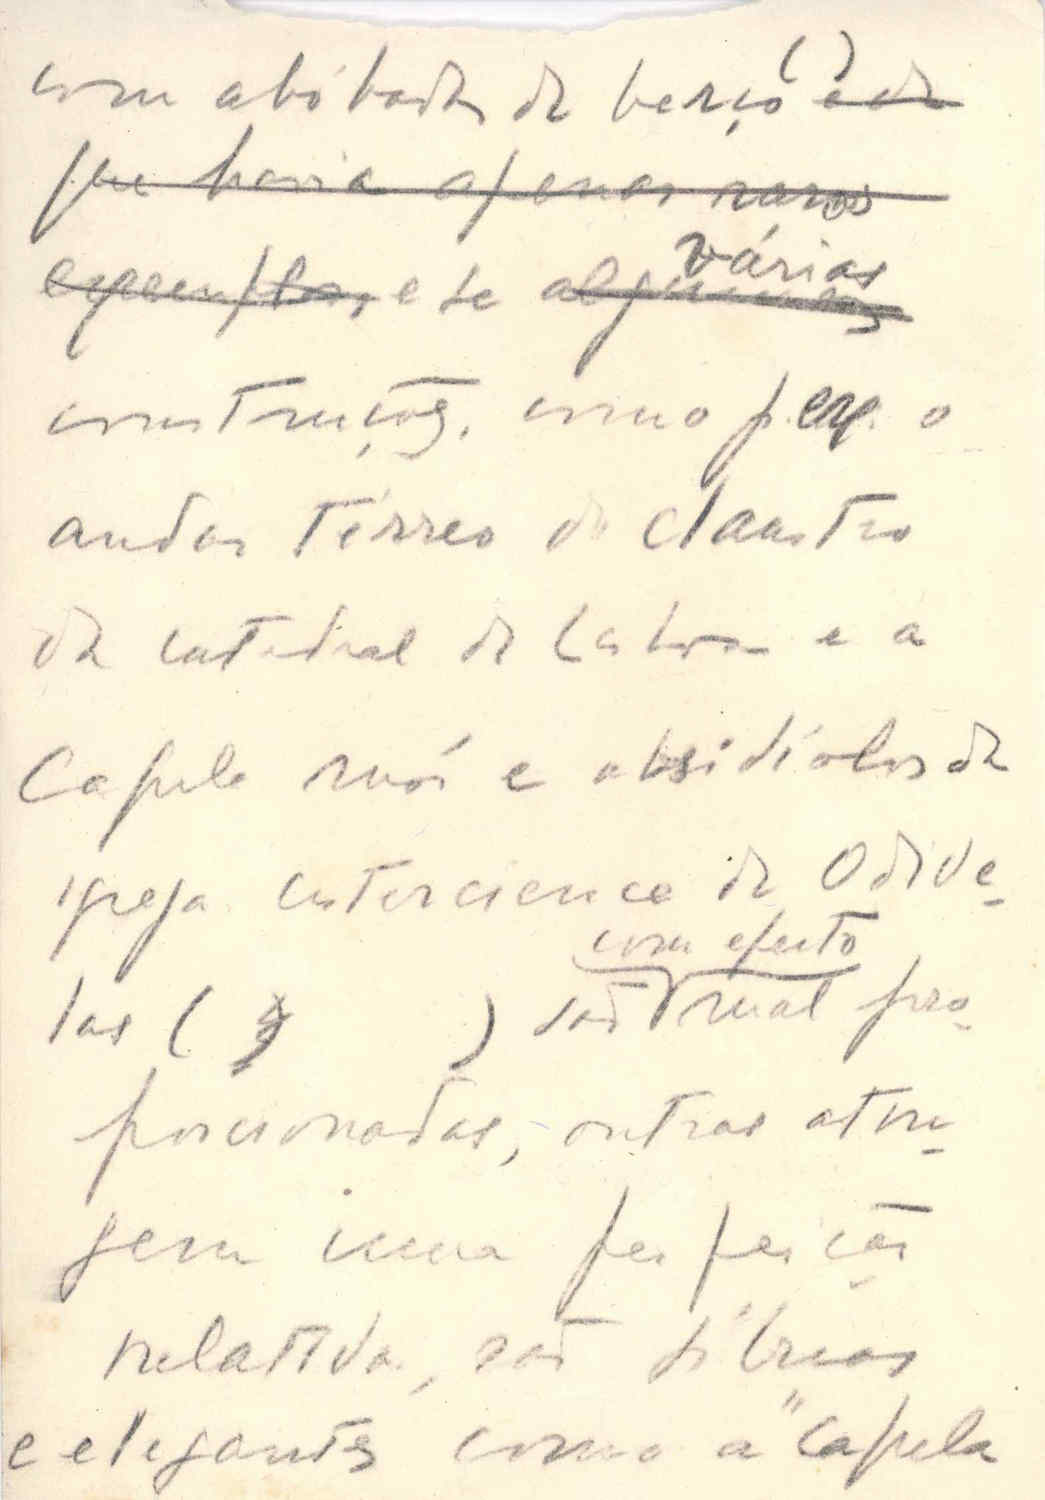 com abóbada de berço ( ) e de
que havia apenas raros
exemplos, e se algumas várias
construções, como p. ex. o
andar térreo do claustro
da catedral de Lisboa e a
Capela mór e absidíolos da
igreja cisterciense de Odive-
las ( ) são com efeito mal pro-
porcionadas, outras atin-
gem uma perfeição
relativa, são sóbrias
e elegantes como a "capela